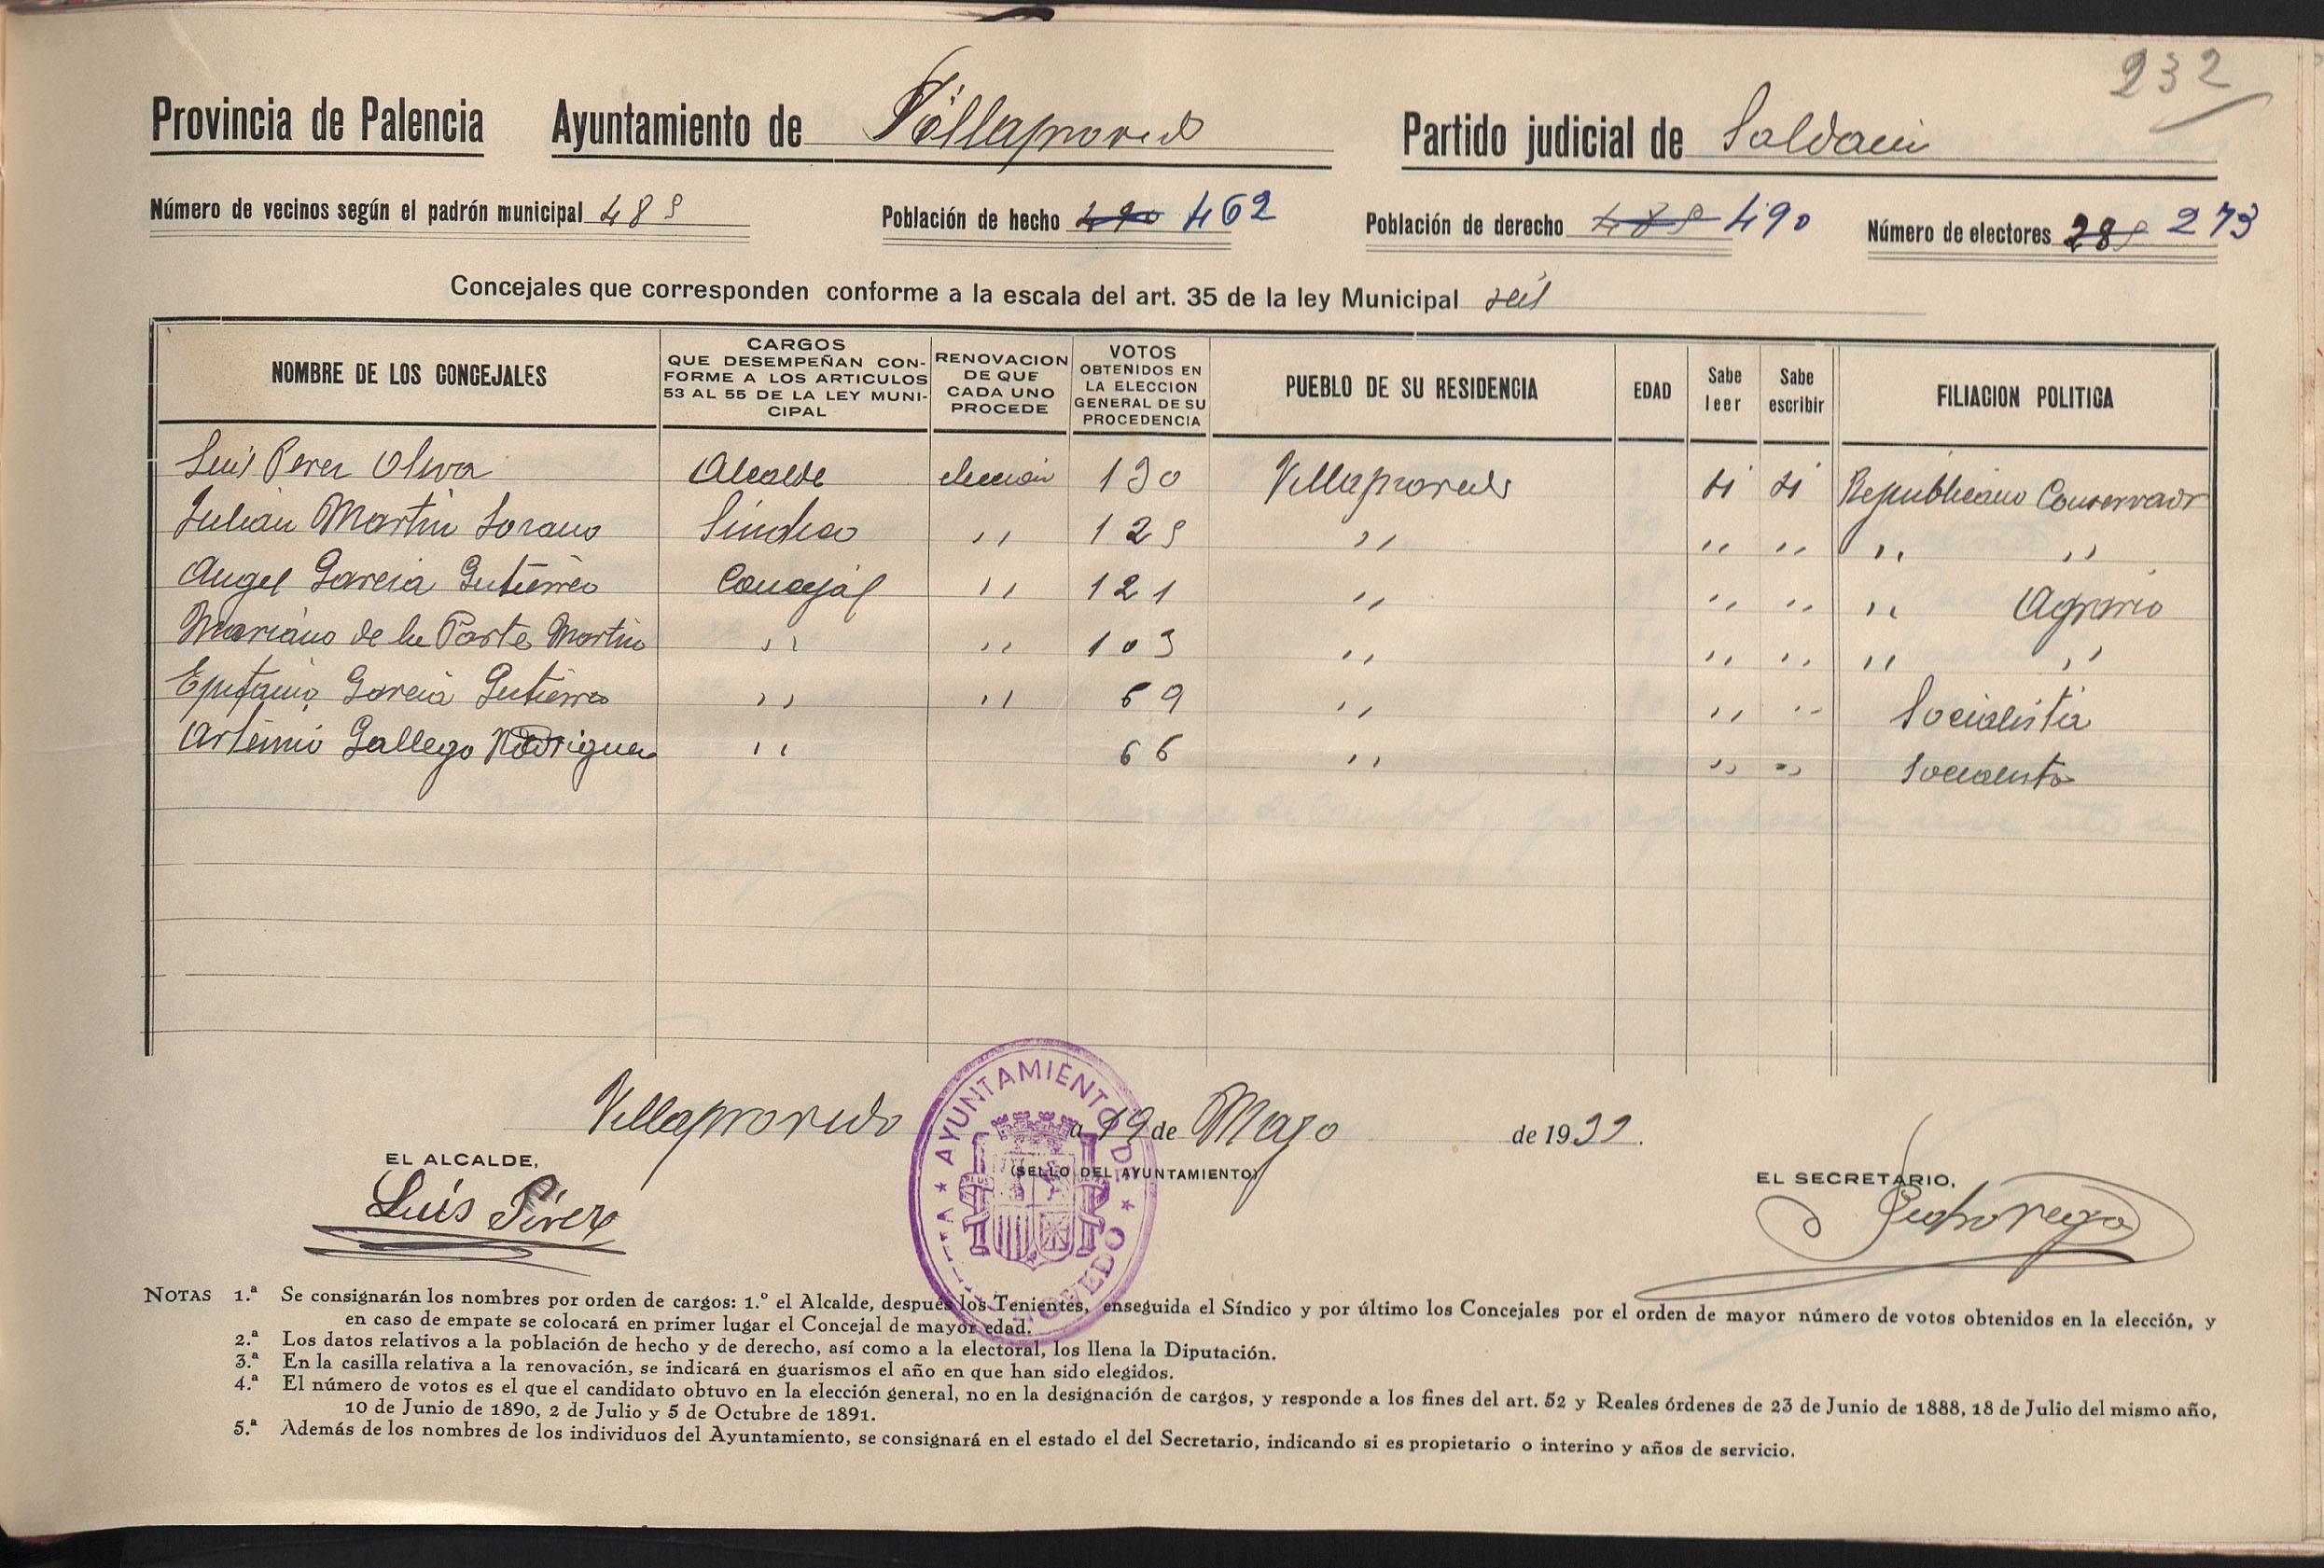 232
Provincia de Palencia Ayuntamiento de Villaprovedo Partido judicial de Saldaña
Número de vecinos según el padrón municipal 489 Población de hecho 490 462 Población de derecho 489 490 Número de electores 289 273
Concejales que corresponden conforme a la escala del art. 35 de la ley Municipal seis
NOMBRE DE LOS CONCEJALES CARGOS QUE DESEMPEÑAN CONFORME A LOS ARTICULOS 53 AL 55 DE LA LEY MUNICIPAL RENOVACION DE QUE CADA UNO PROCEDE VOTOS OBTENIDOS EN LA ELECCION GENERAL DE SU PROCEDENCIA PUEBLO DE SU RESIDENCIA EDAD Sabe leer Sabe escribir FILIACION POLITICA
Luis Perez Oliva Alcalde elección 130 Villaprovedo si si Republicano Conservador
Julián Martin Lozano Síndico ,, 129 ,, ,, ,, ,, ,,
Angel Garcia Gutierrez Concejal ,, 121 ,, ,, ,, ,, Agrario
Mariano de la Parte Martin ,, ,, 103 ,, ,, ,, ,, ,,
Epifanio Garcia Gutierrez ,, ,, 69 ,, ,, ,, Socialista
Artemio Gallego Rodriguez ,, 66 ,, ,, ,, Socialista
Villaprovedo a 19 de Mayo de 1933.
AYUNTAMIENTO DE
VILLAPROVEDO
(SELLO DEL AYUNTAMIENTO)
EL ALCALDE,
Luis Pérez
EL SECRETARIO,
NOTAS 1.ª Se consignarán los nombres por orden de cargos: 1.º el Alcalde, después los Tenientes, enseguida el Síndico y por último los Concejales por el orden de mayor número de votos obtenidos en la elección, y
en caso de empate se colocará en primer lugar el Concejal de mayor edad.
2.ª Los datos relativos a la población de hecho y de derecho, así como a la electoral, los llena la Diputación.
3.ª En la casilla relativa a la renovación, se indicará en guarismos el año en que han sido elegidos.
4.ª El número de votos es el que el candidato obtuvo en la elección general, no en la designación de cargos, y responde a los fines del art. 52 y Reales órdenes de 23 de Junio de 1888, 18 de Julio del mismo año,
10 de Junio de 1890, 2 de Julio y 5 de Octubre de 1891.
5.ª Además de los nombres de los individuos del Ayuntamiento, se consignará en el estado el del Secretario, indicando si es propietario o interino y años de servicio.